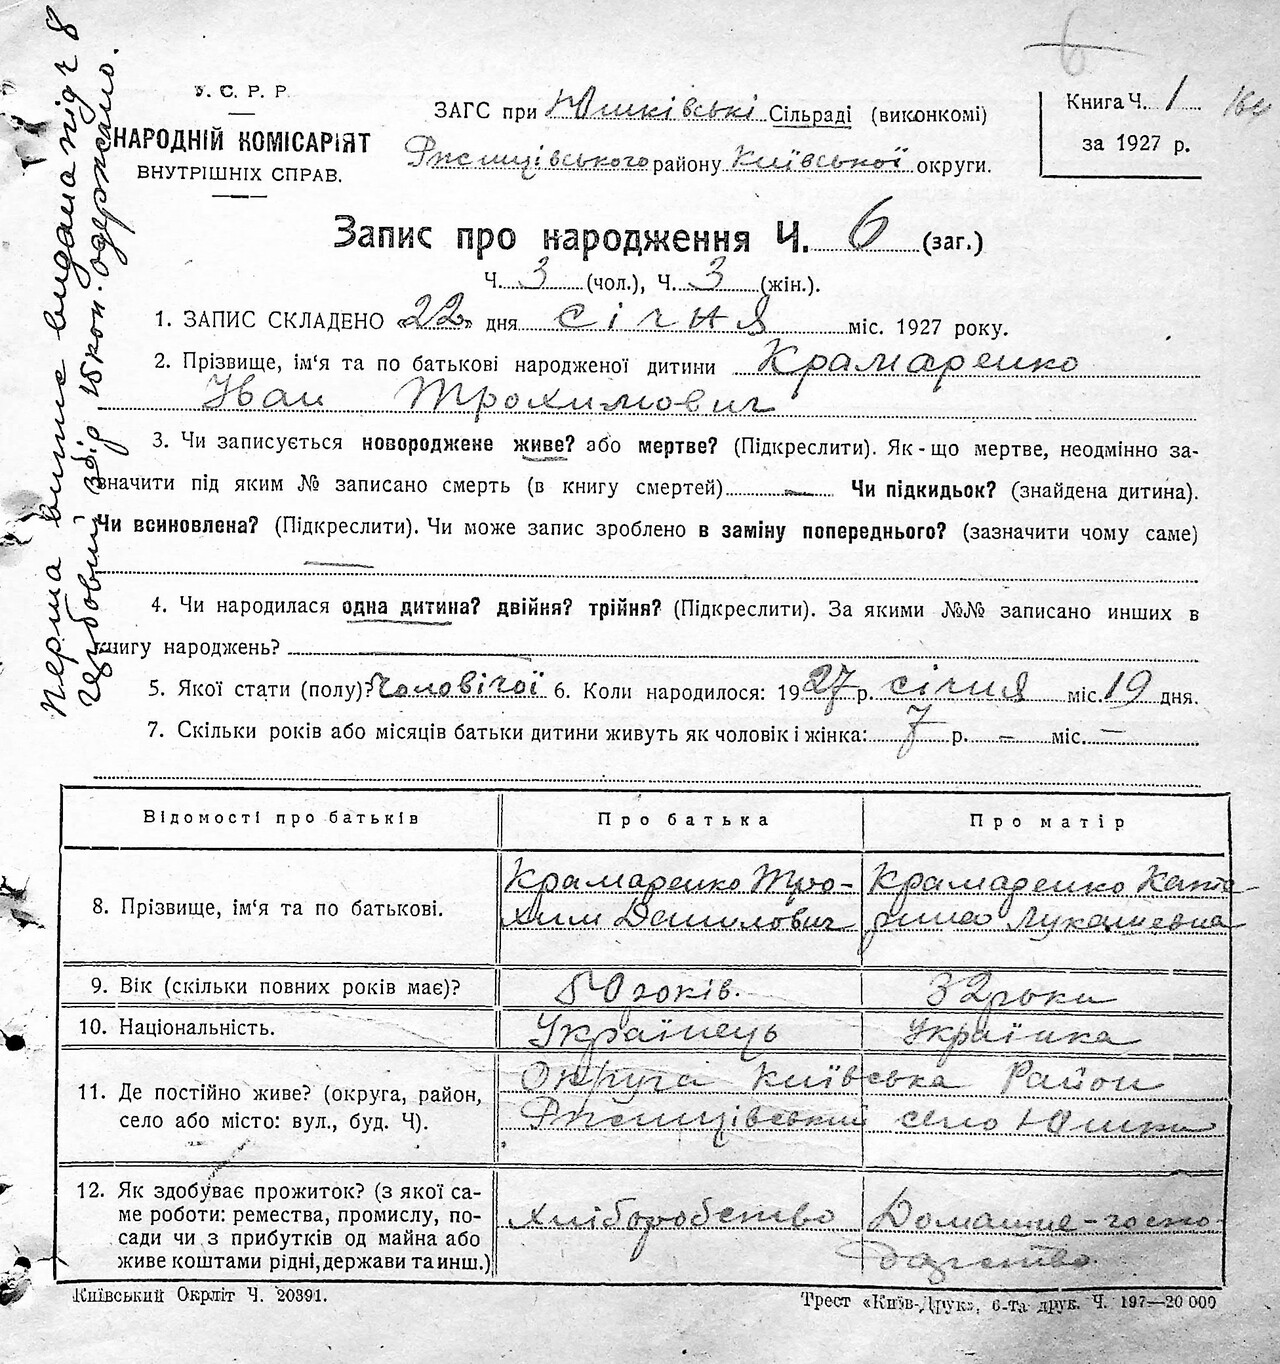 6
Перша виписка видана під ч 8
гербовий збір 15 коп. одержано.
У. С. Р. Р.
НАРОДНІЙ КОМІСАРІЯТ
ВНУТРІШНІХ СПРАВ.
ЗАГС при Юшківські Сільраді (виконкомі)
Ржищівського району Київської округи.
Книга Ч. 1
за 1927 р.
Запис про народження Ч. 6 (заг.)
Ч. 3 (чол.), Ч. 3 (жін.).
1. ЗАПИС СКЛАДЕНО «22» дня січня міс. 1927 року.
2. Прізвище, ім‘я та по батькові народженої дитини Крамаренко
Іван Трохимович
3. Чи записується новороджене живе? або мертве? (Підкреслити). Як-що мертве, неодмінно за-
значити під яким № записано смерть (в книгу смертей) — Чи підкидьок? (знайдена дитина).
Чи всиновлена? (Підкреслити). Чи може запис зроблено в заміну попереднього? (зазначити чому саме)
—
4. Чи народилася одна дитина? двійня? трійня? (Підкреслити). За якими №№ записано инших в
книгу народжень? —
5. Якої стати (полу)? Чоловічої 6. Коли народилося: 1927 р. січня міс. 19 дня.
7. Скільки років або місяців батьки дитини живуть як чоловік і жінка: 7 р. — міс. —
Відомості про батьків Про батька Про матір
8. Прізвище, ім‘я та по батькові.
Крамаренко Тро-
хим Данилович
Крамаренко Кате
рина Лукашевна
9. Вік (скільки повних років має)? 50 років. 32 роки
10. Національність. Українець Українка
11. Де постійно живе? (округа, район,
село або місто: вул., буд. Ч).
Округа Київська Район
Ржищівський село Юшки
12. Як здобуває прожиток? (з якої са-
ме роботи: ремества, промислу, по-
сади чи з прибутків од майна або
живе коштами рідні, держави та инш.)
хліборобство
Домашне-госпо-
дарство
Київський Окрліт Ч. 20391.
Трест «Київ-Друк», 6-та друк. Ч. 197—20 000